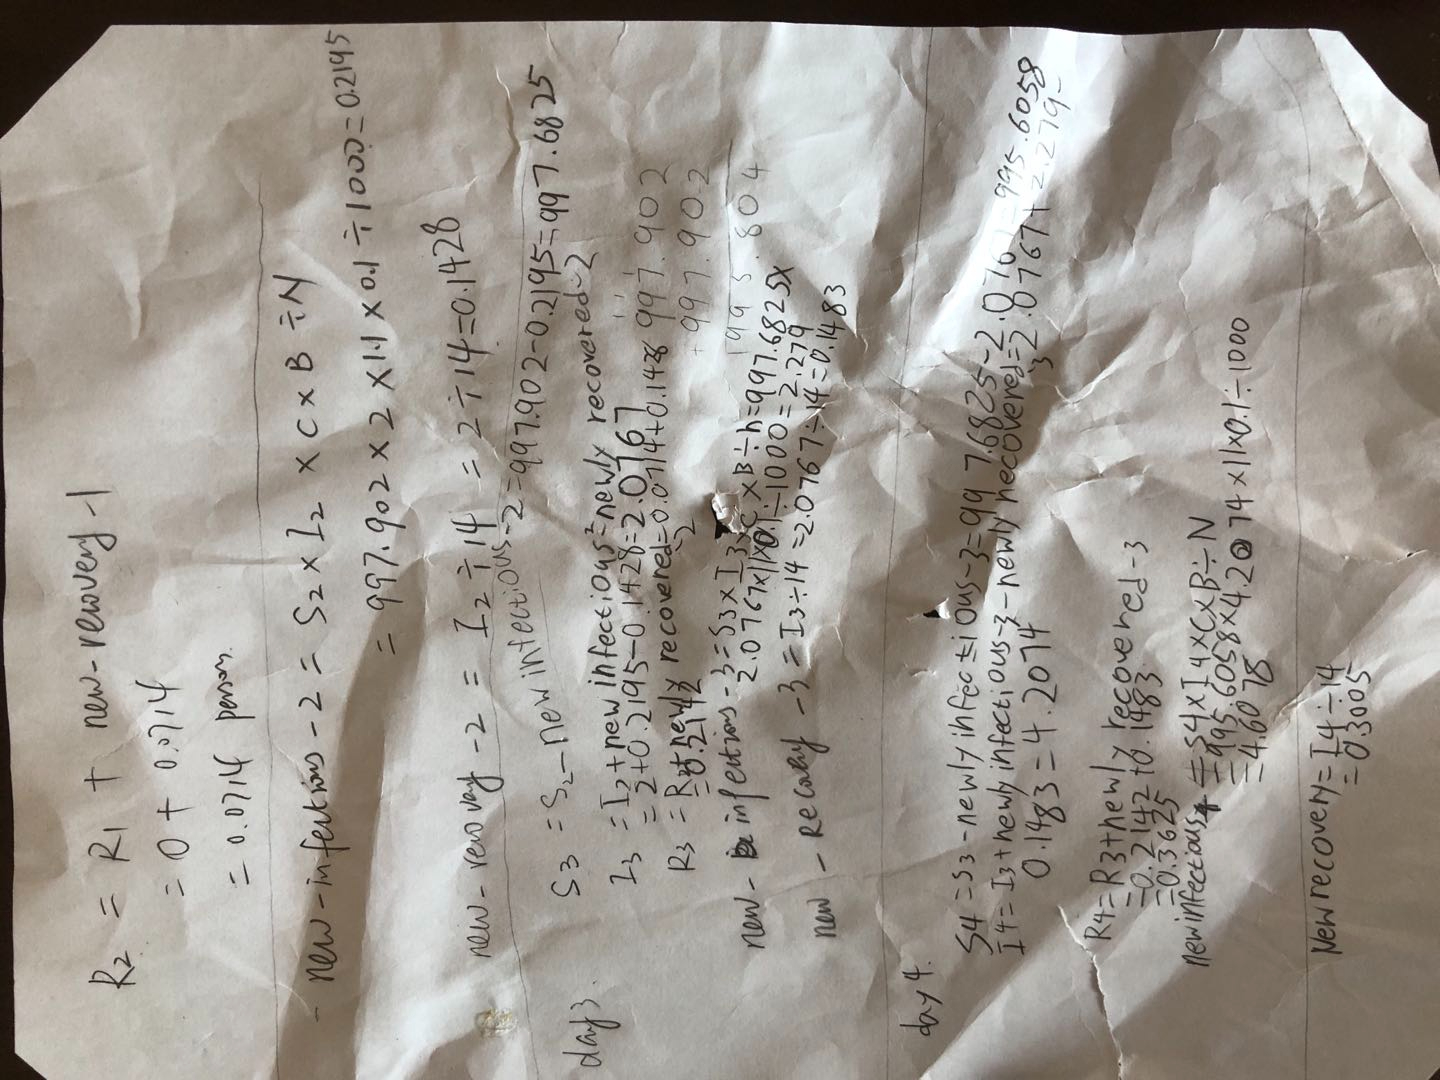 R2 = R1 + new-recovery-1
= 0 + 0.0714
= 0.0714 person.
- new-infections-2 = S2 × I2 × C × B ÷ N
= 997.902 × 2 × 11 × 0.1 ÷ 1000 = 0.2195
new-recovery-2 = I2 ÷ 14 = 2 ÷ 14 = 0.1428
day3. S3 = S2 - new infectious-2 = 997.902-0.2195=997.6825
I3 = I2 + new infectious-2 - newly recovered-2
= 2+0.2195-0.1428=2.0767
R3 = R2+newly recovered-2=0.0714+0.1428
= 0.2142
997.902
+997.902
1995.804
new-infections-3 = S3 × I3 × C × B ÷ n = 997.6825×
2.0767×11×0.1÷1000 = 2.279
new-Recovery-3 = I3÷14 = 2.0767÷14=0.1483
day 4. S4 = S3-newly infectious-3=997.6825-2.0767=995.6058
I4 = I3+newly infectious-3-newly recovered-3=2.0767+2.279-
0.1483 = 4.2074
R4=R3+newly recovered-3
=0.2142+0.1483
=0.3625
new infectious4 = S4×I4×C×B÷N
=995.6058×4.2074×11×0.1÷1000
=4.6078
New recovery=I4÷14
= 0.3005